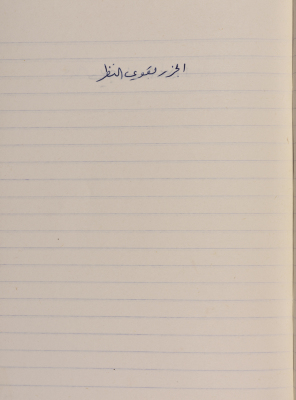 الجزر يقوي النظر